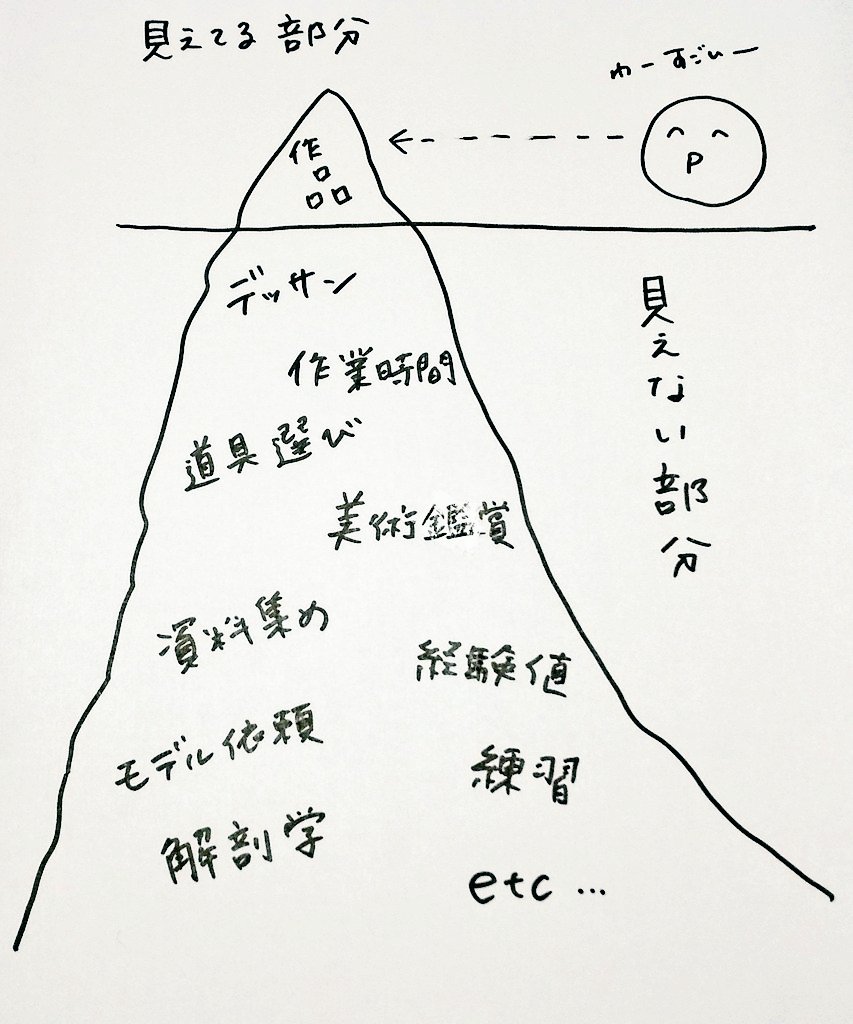 見えてる部分
わーすごいー
作品
デッサン
作業時間
道具選び
美術鑑賞
資料集め
経験値
モデル依頼
練習
解剖学
etc…
見えない部分